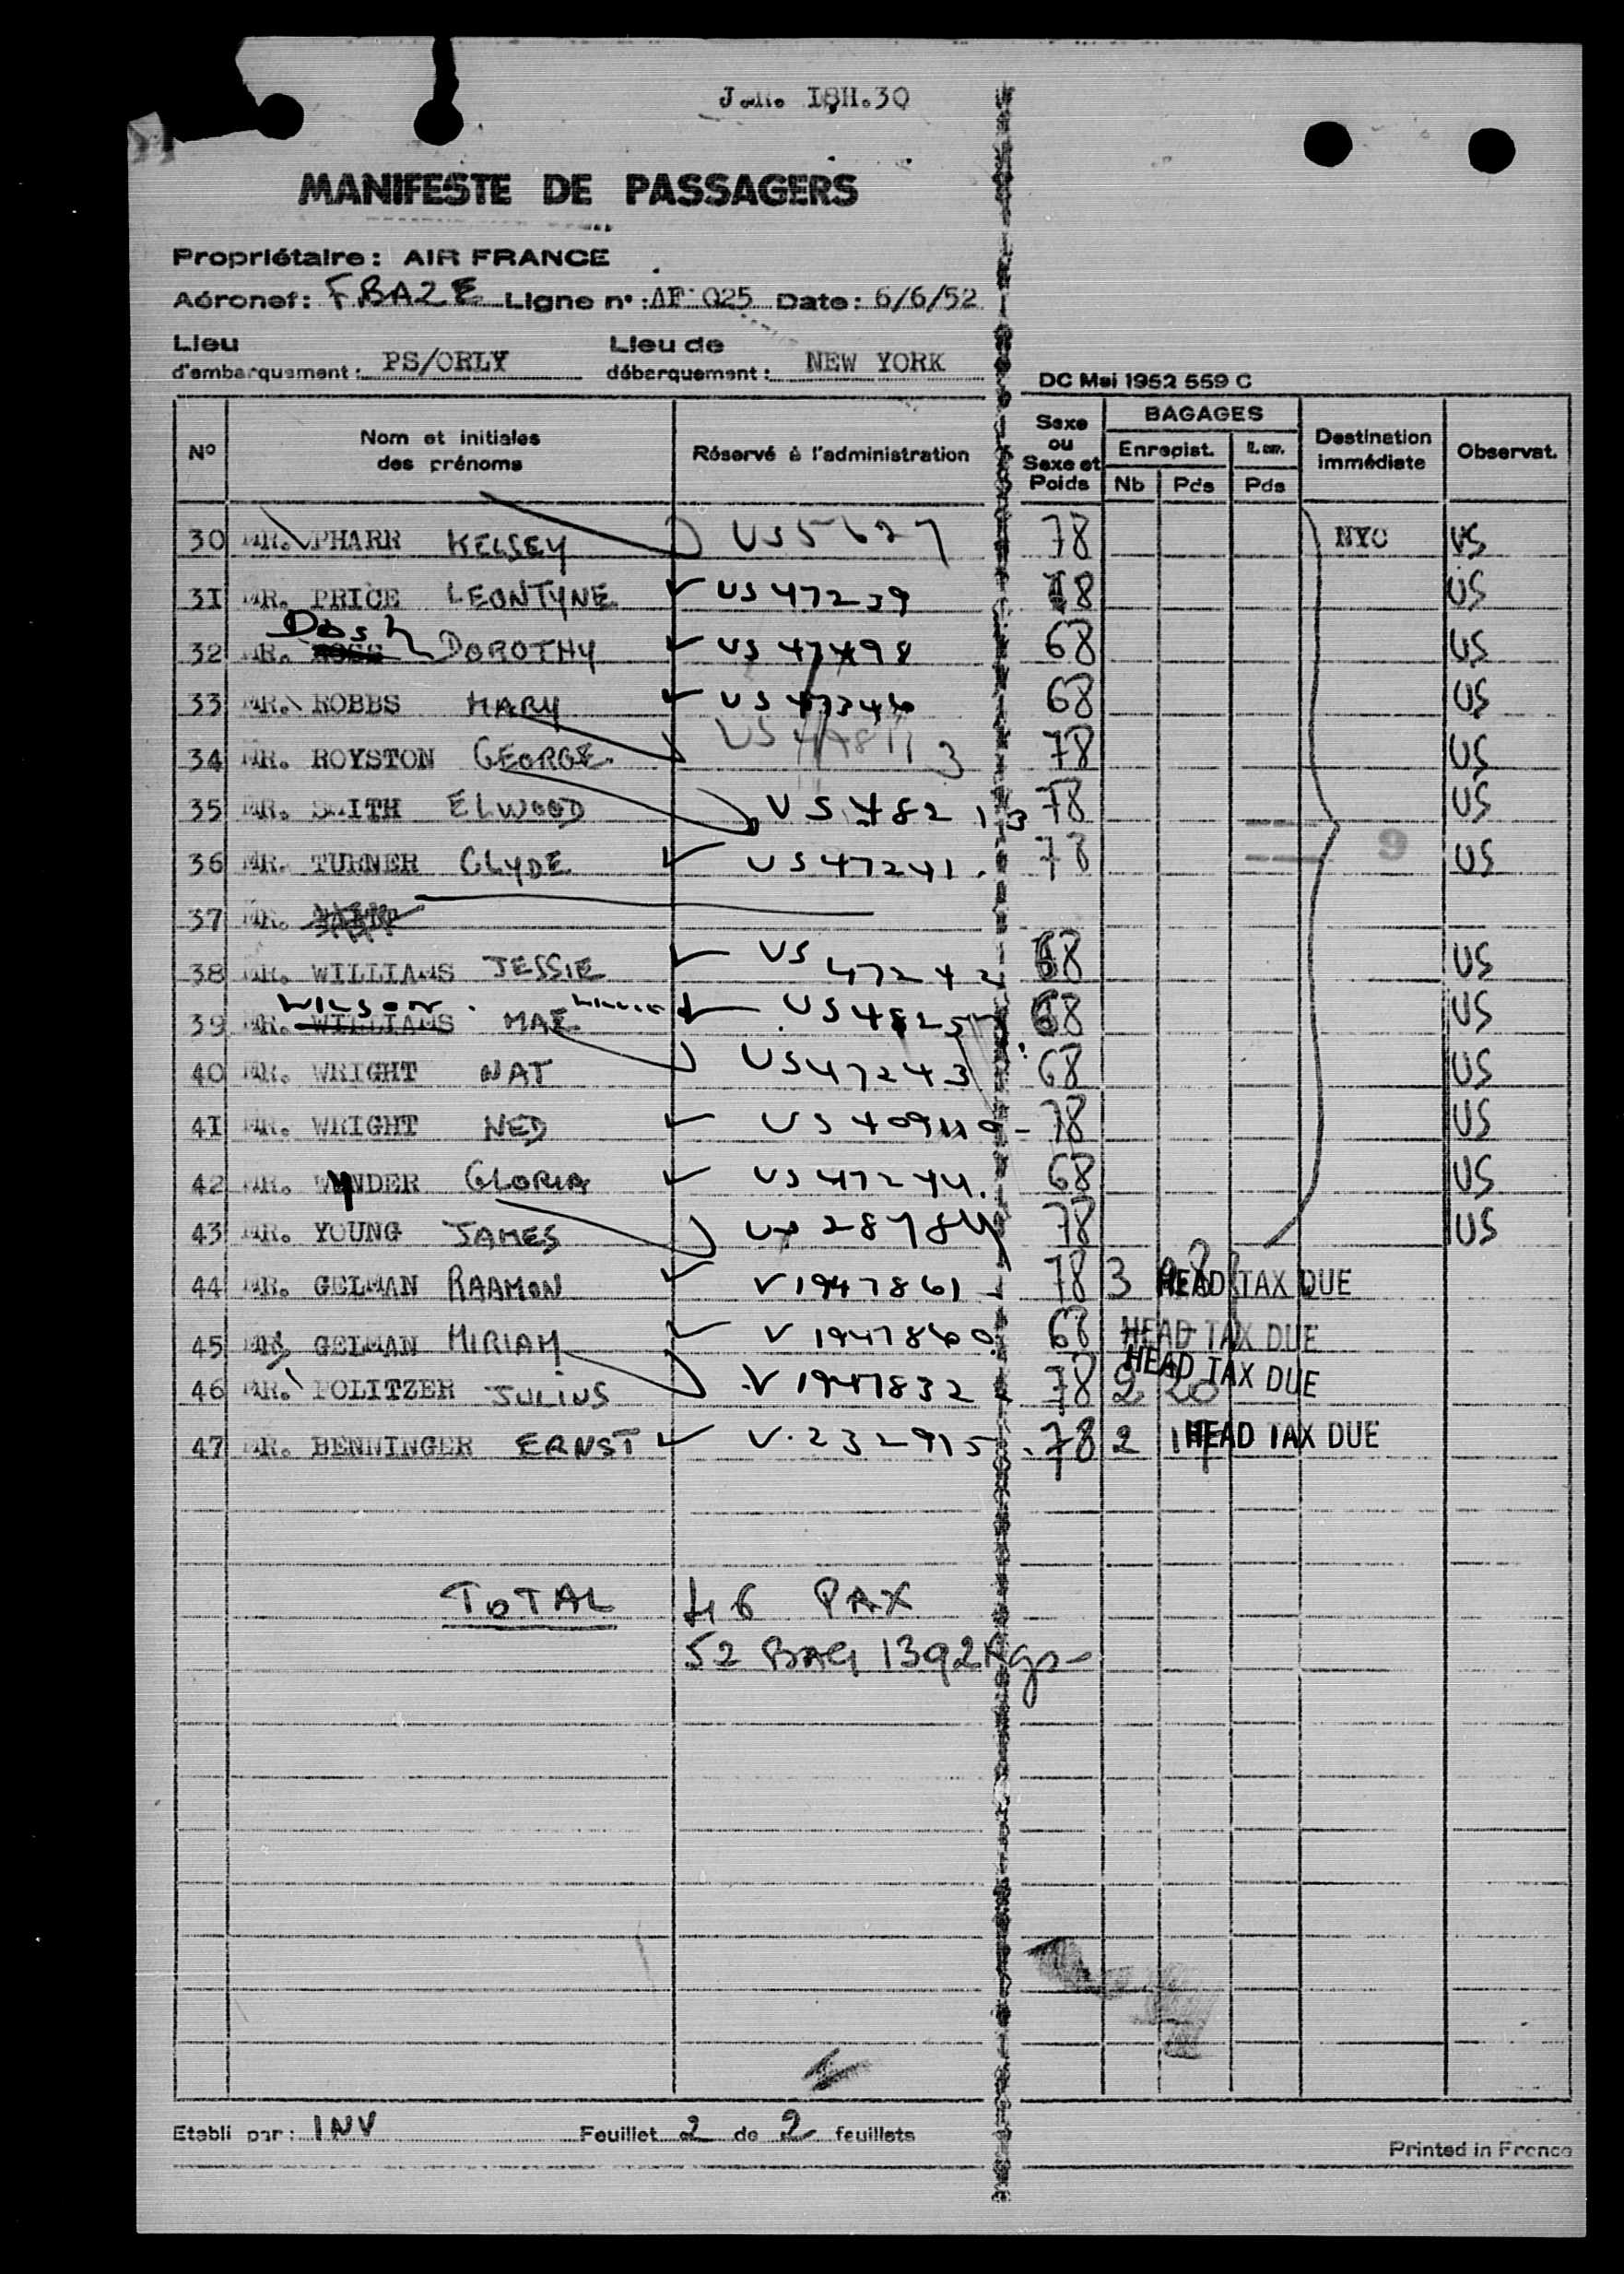 18H.30
MANIFESTE DE PASSAGERS
Propriétaire : AIR FRANCE
Aéronef : F.BAZE Ligne n° : AF 025 Date : 6/6/52
Lieu d'embarquement : PS/ORLY Lieu de débarquement : NEW YORK
DC Mai 1952 559 C
N° Nom et initiales des prénoms Réservé à l'administration Sexe ou Sexe et Poids BAGAGES Enregist. Nb Pds Pds Destination immédiate Observat.
30 MR. PHARR KELSEY 78 NYC US
31 MR. PRICE LEONTYNE US 47239 US
32 MR. Dash DOROTHY 68 US
33 MR. ROBBS MARY 68 US
34 MR. ROYSTON GEORGE 78 US
35 MR. SMITH ELWOOD US 48213 78 US
36 MR. TURNER CLYDE US 47241. 78 US
9
37 MR.
38 MR. WILLIAMS JESSIE US 47242 68 US
39 MR. WILLIAMS Wilson MAE 68 US
40 MR. WRIGHT NAT US 47243 68 US
41 MR. WRIGHT NED 78 US
42 MR. WYNDER GLORIA US 47244. 68 US
43 MR. YOUNG JAMES 78 US
44 MR. GELMAN RAAMON V 1947861 78 3 HEAD TAX DUE
45 GELMAN MIRIAM V 1947860 68 HEAD TAX DUE
46 MR. POLITZER JULIUS V 1947832 78 2 20 HEAD TAX DUE
47 MR. BENNINGER ERNST V.232915 78 2 HEAD TAX DUE
TOTAL 46 PAX
52 BAG 1392 Kgs
Etabli par : INV Feuillet 2 de 2 feuillets
Printed in France